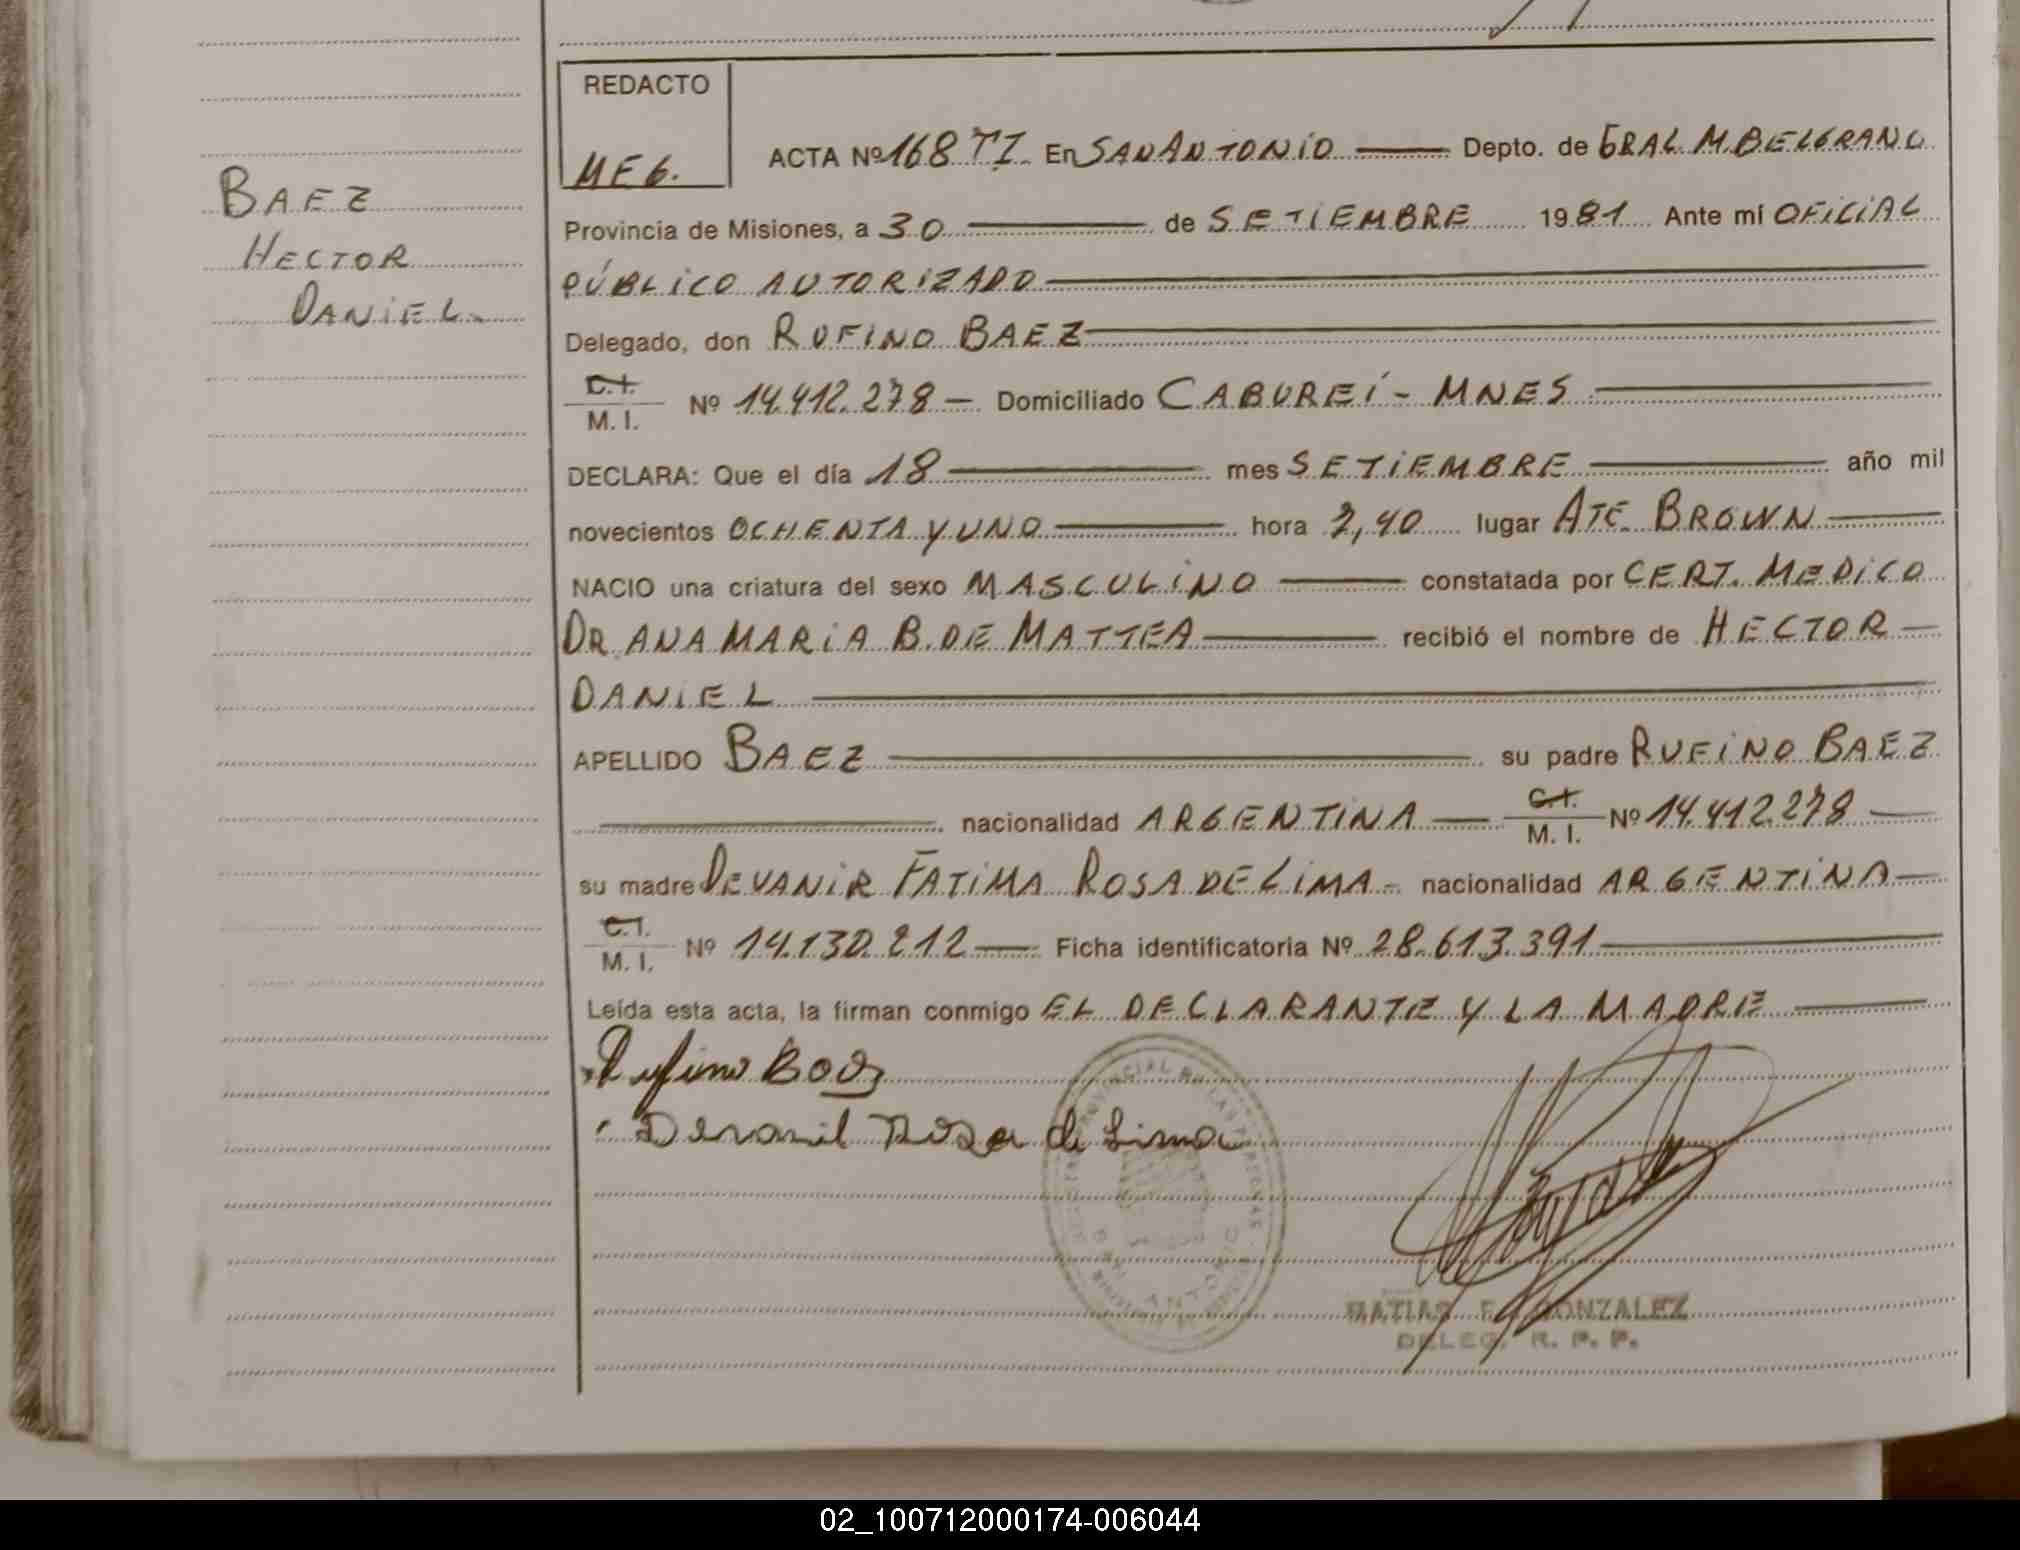 REDACTO
MEG.
BAEZ
HECTOR
DANIEL
ACTA Nº 168 TI En SAN ANTONIO Depto. de GRAL M. BELGRANO
Provincia de Misiones, a 30 de SETIEMBRE 1981 Ante mí OFICIAL
PÚBLICO AUTORIZADO
Delegado, don RUFINO BAEZ
C.I.
M. I. Nº 14.412.278 – Domiciliado CABUREÍ - MNES
DECLARA: Que el día 18 mes SETIEMBRE año mil
novecientos OCHENTA Y UNO hora 2,40 lugar ATE. BROWN
NACIO una criatura del sexo MASCULINO constatada por CERT. MEDICO
DR. ANA MARIA B. DE MATTEA recibió el nombre de HECTOR
DANIEL
APELLIDO BAEZ su padre RUFINO BAEZ
nacionalidad ARGENTINA C.I. M. I. Nº 14.412.278
su madre DEVANIR FATIMA ROSA DE LIMA - nacionalidad ARGENTINA
C.I.
M. I. Nº 14.130.212 Ficha identificatoria Nº 28.613.391
Leída esta acta, la firman conmigo EL DECLARANTE Y LA MADRE
Rufino Baez
Devanil Rosa de Lima
MATIAS F. GONZALEZ
DELEG. R. P. P.
02_100712000174-006044